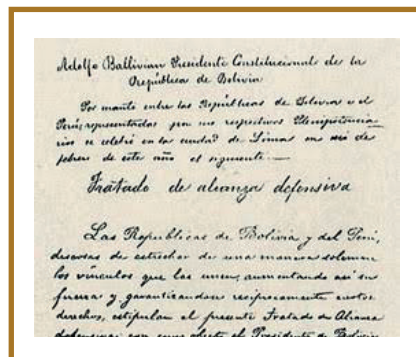 Adolfo Ballivian Presidente Constitucional de la
República de Bolivia
Por cuanto entre las Repúblicas de Bolivia y el
Perú, representadas por sus respectivos Plenipotencia-
rios se celebró en la ciudad de Lima en seis de
febrero de este año el siguiente
Tratado de alianza defensiva
Las Republicas de Bolivia y del Perú,
deseosas de estrechar de una manera solemne
los vínculos que las unen, aumentando así su
fuerza y garantizandose recíprocamente ciertos
derechos, estipulan el presente Tratado de Alianza
defensiva; con cuyo objeto el Presidente de Bolivia